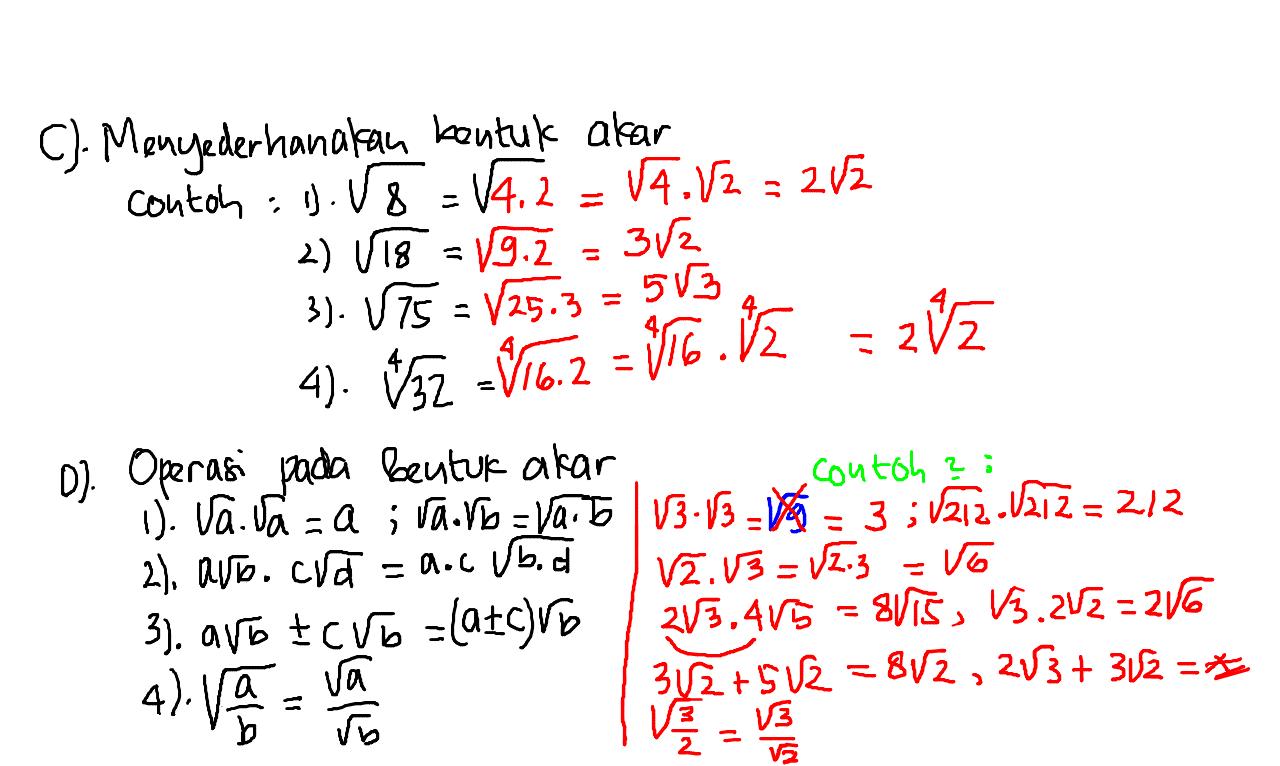 C). Menyederhanakan bentuk akar
contoh : 1). √8 = √4.2 = √4.√2 = 2√2
2) √18 = √9.2 = 3√2
3). √75 = √25.3 = 5√3
4). ⁴√32 = ⁴√16.2 = ⁴√16 . ⁴√2 = 2 ⁴√2
D). Operasi pada bentuk akar
1). √a.√a = a ; √a.√b = √a.b
2). a√b . c√d = a.c √b.d
3). a√b ± c√b = (a±c)√b
4). √(a/b) = √a/√b
contoh 2 :
√3.√3 = √9 = 3 ; √212.√212 = 212
√2.√3 = √2.3 = √6
2√3.4√5 = 8√15, √3.2√2 = 2√6
3√2 + 5√2 = 8√2, 2√3 + 3√2 =
√(3/2) = √3/√2